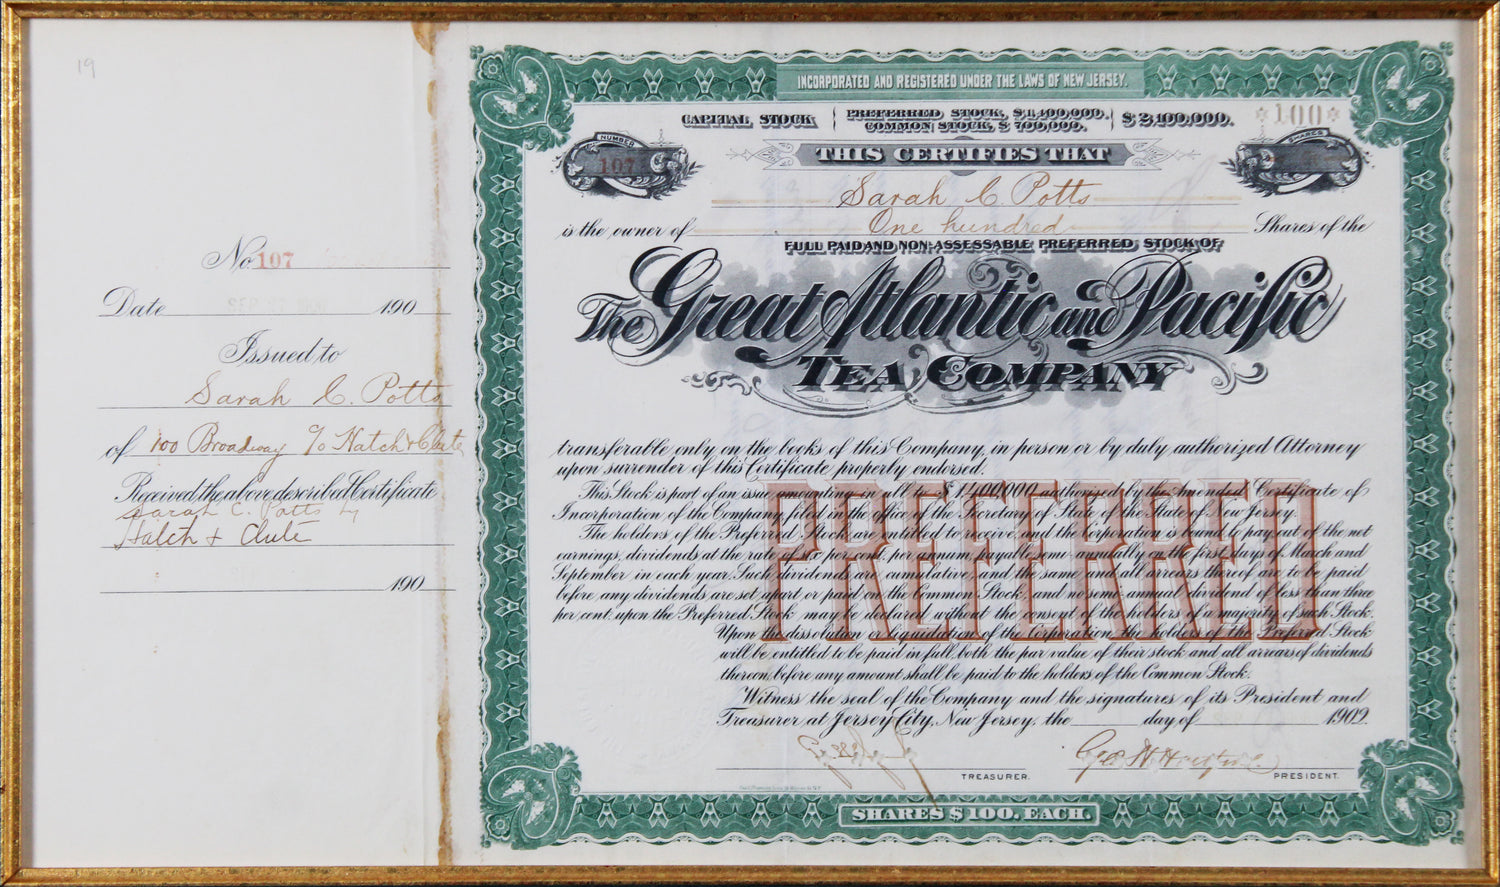 19
No. 107
Date 190
Issued to
Sarah C. Potts
of 100 Broadway c/o Hatch & Clute
Received the above described Certificate
Sarah C. Potts by
Hatch & Clute
190
INCORPORATED AND REGISTERED UNDER THE LAWS OF NEW JERSEY.
CAPITAL STOCK PREFERRED STOCK, $1,400,000. COMMON STOCK, $700,000. $2,100,000.
100
NUMBER
107
SHARES
THIS CERTIFIES THAT
Sarah C. Potts
is the owner of One hundred Shares of the
FULL PAID AND NON-ASSESSABLE PREFERRED STOCK OF
The Great Atlantic and Pacific
TEA COMPANY
transferable only on the books of this Company, in person or by duly authorized Attorney
upon surrender of this Certificate properly endorsed.
This Stock is part of an issue amounting in all to $1,400,000 authorized by the Amended Certificate of
Incorporation of the Company, filed in the office of the Secretary of State of the State of New Jersey.
The holders of the Preferred Stock are entitled to receive, and the corporation is bound to pay, out of the net
earnings, dividends at the rate of six per cent. per annum, payable semi-annually on the first days of March and
September in each year. Such dividends are cumulative, and the same and all arrears thereof are to be paid
before any dividends are set apart or paid on the Common Stock, and no semi-annual dividend of less than three
per cent. upon the Preferred Stock may be declared without the consent of the holders of a majority of such Stock.
Upon the dissolution or liquidation of the Corporation, the holders of the Preferred Stock
will be entitled to be paid in full, both the par value of their stock and all arrears of dividends
thereon, before any amount shall be paid to the holders of the Common Stock.
PREFERRED
Witness the seal of the Company and the signatures of its President and
Treasurer, at Jersey City, New Jersey, the day of 1902
Geo H Hartford
TREASURER. PRESIDENT.
SHARES $100. EACH.